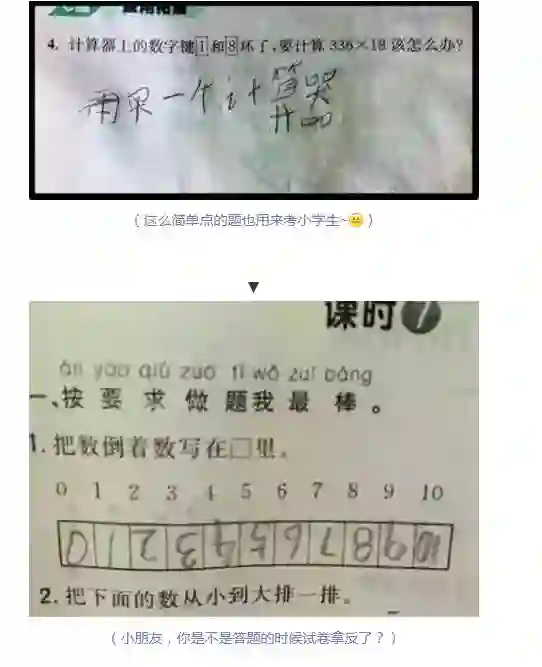 4. 计算器上的数字键1和8坏了,要计算 336×18 该怎么办?
用另一个计算器
(这么简单点的题也用来考小学生~)
▼
课时 1
àn yāo qiú zuò tí wǒ zuì bàng
一、按要求做题我最棒。
1. 把数倒着数写在□里。
0 1 2 3 4 5 6 7 8 9 10
0 1 2 3 4 5 6 7 8 9 10
2. 把下面的数从小到大排一排。
(小朋友,你是不是答题的时候试卷拿反了?)